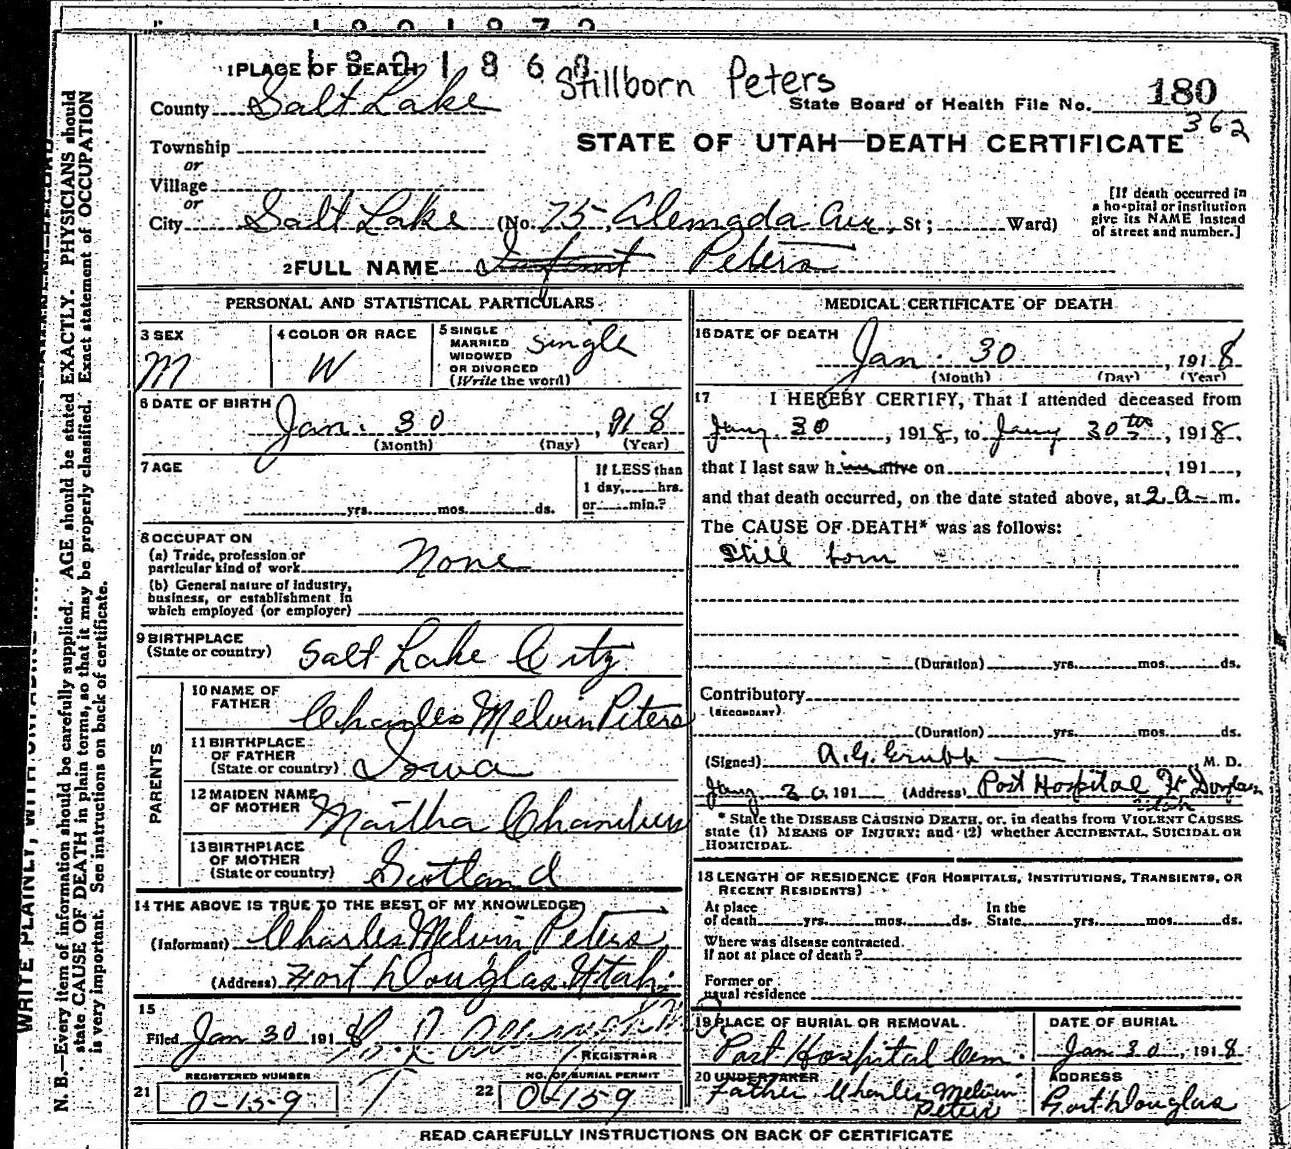 1821868
Stillborn Peters
1 PLACE OF DEATH
County Salt Lake
State Board of Health File No. 180
362
STATE OF UTAH—DEATH CERTIFICATE
Township
or
Village
or
City Salt Lake (No. 75, Alemada Ave, St; Ward)
[If death occurred in
a hospital or institution
give its NAME instead
of street and number.]
2 FULL NAME Infant Peters
PERSONAL AND STATISTICAL PARTICULARS
3 SEX
M
4 COLOR OR RACE
W
5 SINGLE
MARRIED
WIDOWED
OR DIVORCED
(Write the word)
Single
6 DATE OF BIRTH
Jan. 30, 918
(Month) (Day) (Year)
7 AGE
yrs. mos. ds.
If LESS than
1 day, hrs.
or min.?
8 OCCUPATON
(a) Trade, profession or
particular kind of work None
(b) General nature of industry,
business, or establishment in
which employed (or employer)
9 BIRTHPLACE
(State or country) Salt Lake City
PARENTS
10 NAME OF
FATHER Charles Melvin Peters
11 BIRTHPLACE
OF FATHER
(State or country) Iowa
12 MAIDEN NAME
OF MOTHER Martha Chambers
13 BIRTHPLACE
OF MOTHER
(State or country) Scotland
14 THE ABOVE IS TRUE TO THE BEST OF MY KNOWLEDGE
(Informant) Charles Melvin Peters
(Address) Fort Douglas Utah
15
Filed Jan 30 1918
REGISTRAR
REGISTERED NUMBER
21 0-159
NO. OF BURIAL PERMIT
22 0-159
MEDICAL CERTIFICATE OF DEATH
16 DATE OF DEATH
Jan. 30, 1918
(Month) (Day) (Year)
17 I HEREBY CERTIFY, That I attended deceased from
Jany. 30, 1918, to Jany 30th, 1918.
that I last saw him alive on , 191 ,
and that death occurred, on the date stated above, at 2 a m.
The CAUSE OF DEATH* was as follows:
Still born
(Duration) yrs. mos. ds.
Contributory
(SECONDARY)
(Duration) yrs. mos. ds.
(Signed) A.G. Grubb M. D.
Jany 30 191 (Address) Post Hospital Ft Douglas
Utah
* State the DISEASE CAUSING DEATH, or, in deaths from VIOLENT CAUSES
state (1) MEANS OF INJURY; and (2) whether ACCIDENTAL, SUICIDAL OR
HOMICIDAL.
18 LENGTH OF RESIDENCE (FOR HOSPITALS, INSTITUTIONS, TRANSIENTS, OR
RECENT RESIDENTS)
At place
of death yrs. mos. ds.
In the
State yrs. mos. ds.
Where was disease contracted.
If not at place of death?
Former or
usual residence
19 PLACE OF BURIAL OR REMOVAL.
Post Hospital Cem.
DATE OF BURIAL
Jan 30, 1918
20 UNDERTAKER
Father, Charles Melvin
Peters
ADDRESS
Fort Douglas
READ CAREFULLY INSTRUCTIONS ON BACK OF CERTIFICATE
N. B.—Every item of information should be carefully supplied. AGE should be stated EXACTLY. PHYSICIANS should
state CAUSE OF DEATH in plain terms, so that it may be properly classified. Exact statement of OCCUPATION
is very important. See instructions on back of certificate.
WRITE PLAINLY, WITH